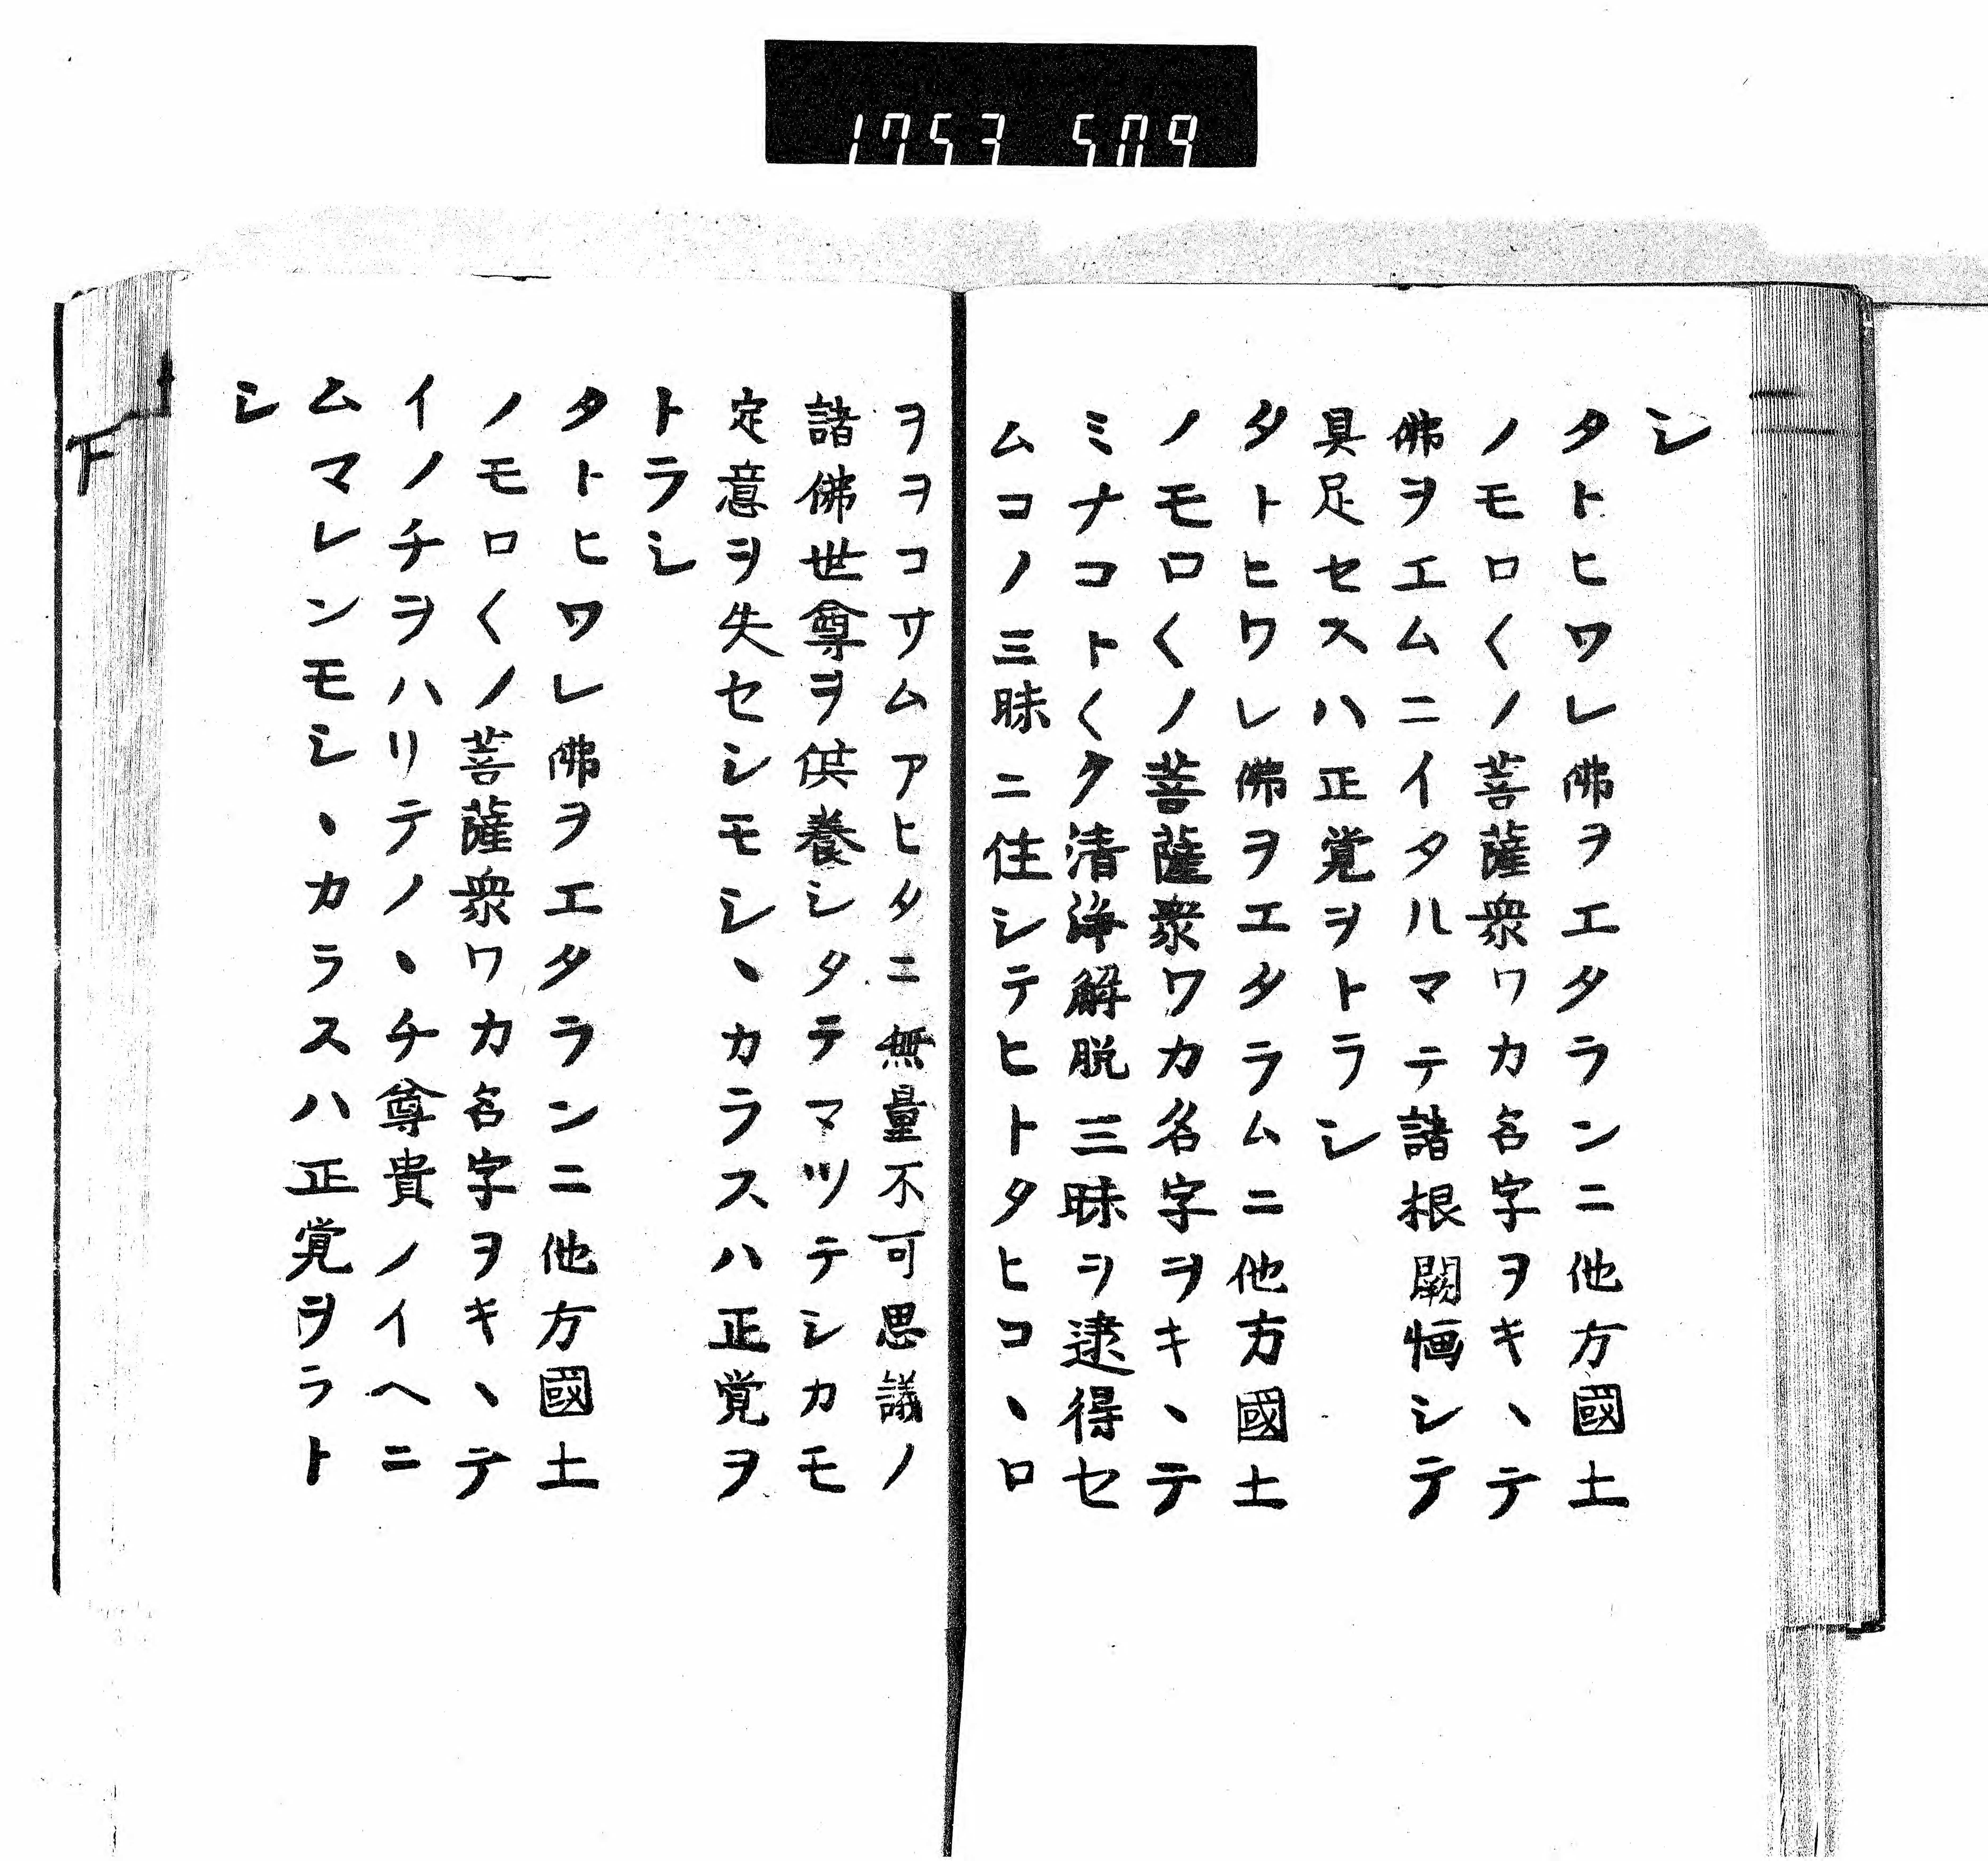 1753 509
シ
タトヒワレ佛ヲエタランニ他方國土
ノモロ〱ノ菩薩衆ワカ名字ヲキヽテ
佛ヲエムニイタルマテ諸根闕陋シテ
具足セスハ正覚ヲトラシ
タトヒワレ佛ヲエタラムニ他方國土
ノモロ〱ノ菩薩衆ワカ名字ヲキヽテ
ミナコト〱ク清淨解脱三昧ヲ逮得セ
ムコノ三昧ニ住シテヒトタヒコヽロ
ヲヲコサムアヒタニ無量不可思議ノ
諸佛世尊ヲ供養シタテマツテシカモ
定意ヲ失セシモシヽカラスハ正覚ヲ
トラシ
タトヒワレ佛ヲエタランニ他方國土
ノモロ〱ノ菩薩衆ワカ名字ヲキヽテ
イノチヲハリテノヽチ尊貴ノイヘニ
ムマレンモシヽカラスハ正覚ヲラト
シ
下